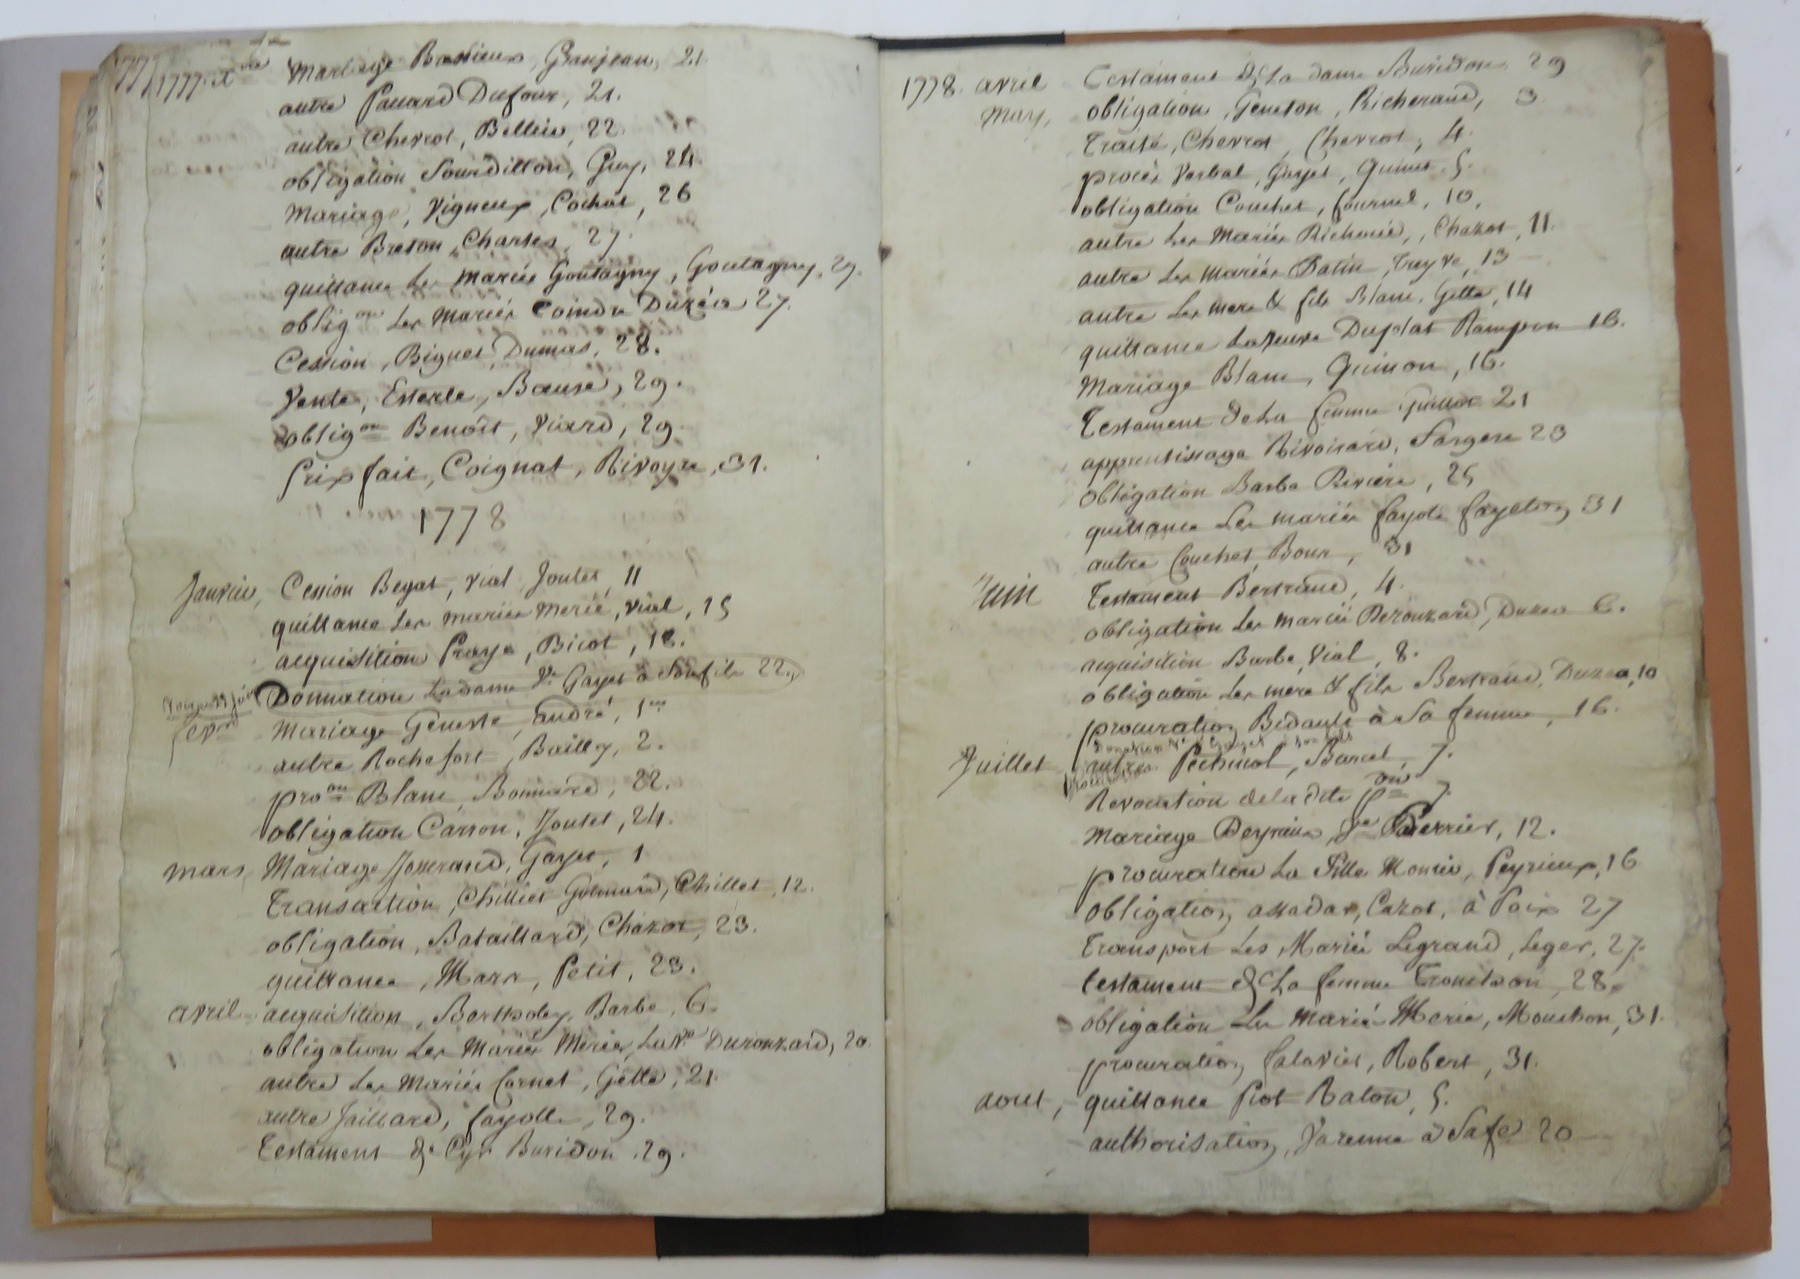 1777 1777. xbre Mariage Bassieux, Granjean, 21.
autre Pauard Dufour, 21.
autre Chevrot, Bellin, 22.
obligation Sourdillon, Guy, 24
Mariage, Vigneux, Cochat, 26
autre Breton, Charles, 27.
quittance les Mariés Goutagny, Goutagny, 27.
oblig.on les Mariés Coindu Duzéa 27.
Cession, Biguet, Dumas, 28.
Vente, Esterle, Bœuse, 29.
oblig.on Benoît, Viard, 29
Prix fait, Coignat, Rivoyre, 31.
1778
Janvier, Cession Beyat, Vial Joutet, 11
quittance les mariés Merié, Vial, 15
acquisition Praye, Bicot, 18.
Donnation La dame Ve. Gayet à Son fils 22.
Mariage Geneste, André, 1er
autre Rochefort, Bailly, 2.
pro.on Blanc, Bonnard, 22.
obligation Carron, Joutet, 24.
mars, Mariage Josserand, Gayet, 1
Transaction, Chillet, Chillet, 12.
obligation, Bataillard, Chazot, 23.
quittance, Marr, Petit, 23.
avril acquisition, Bertholey, Barbe, 6.
obligation les Mariés Meriés, La Ve Durouzard, 20.
autre les Mariés Cornet, Gette, 21.
autre Jaillard, fayolle, 29.
Testament de Cyr Buridon, 29.
1778. avril Testament de La dame Buridon 29
May, obligation, Geneton, Richerand, 3
Traité, Chevrot, Chevrot, 4.
procès Verbal, Gayet, 5.
obligation Couchet, fournel, 10,
autre les Mariés Richerié, Chazot, 11.
autre les Mariés Patin, Treyve, 13
autre les mere & fils Blanc, Gette, 14
quittance La Veuve Duplat Rampon 16.
Mariage Blanc, Guinon, 16.
Testament de La femme Guillot 21
apprentissage Rivoirard, Fargere 23
obligation Barbe Rivière, 25
quittance les mariés fayole fayeton, 31
autre Couchet, Bour, 31
Juin Testament Bertrand, 4.
obligation les mariés Derouzard, Duzea 6.
acquisition Barbe, Vial, 8.
obligation les mere & fils Bertrand, Duzea, 10
procuration Bidault à Sa femme, 16.
Donation Ve Gayet à son fils
Juillet autre Pechinot, Barcet, 7.
procuration
Revocation de la dite p.on 7.
Mariage Peyrieux, Perrier, 12.
procuration La fille Monier, Peyrieux, 16
obligation, assadar, Cazot, à Paix 27
Transport Les Mariés Legrand, Leger, 27.
testament de La femme Troncson, 28.
obligation les mariés Merié, Mouchon, 31.
procuration, falaviet, Robert, 31.
aout, quittance Piot Raton, 5.
authorisation, Varenne à Safe 20